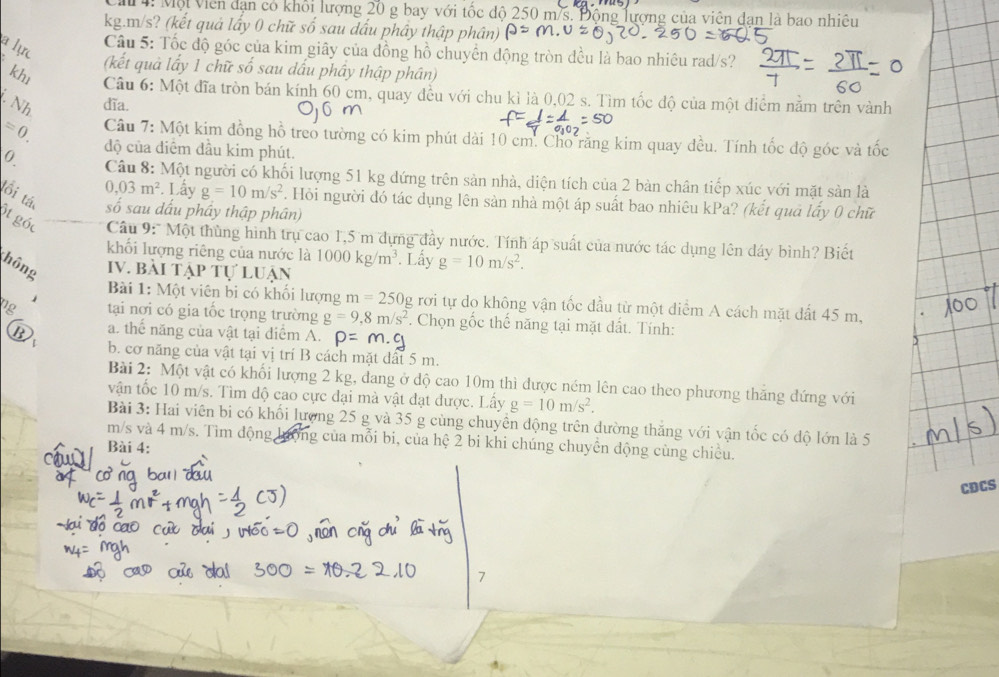 Câu 4: Một viên đạn có khối lượng 20 g bay với tốc độ 250 m/s. Động lượng của viên đạn là bao nhiêu
kg.m/s? (kết quả lấy 0 chữ số sau dấu phẩy thập phân) P = m.v = 0,20. 250 =
Câu 5: Tốc độ góc của kim giây của đồng hồ chuyển động tròn đều là bao nhiêu rad/s?
(kết quả lấy 1 chữ số sau dấu phẩy thập phân)
2π/T = 2π/60 = 0
Câu 6: Một đĩa tròn bán kính 60 cm, quay đều với chu kì là 0,02 s. Tìm tốc độ của một điểm nằm trên vành
đĩa.
0,6 m
f = 1/T = 1/0,02 = 50
Câu 7: Một kim đồng hồ treo tường có kim phút dài 10 cm. Cho rằng kim quay đều. Tính tốc độ góc và tốc
độ của điểm đầu kim phút.
Câu 8: Một người có khối lượng 51 kg đứng trên sàn nhà, diện tích của 2 bàn chân tiếp xúc với mặt sàn là
0,03 m². Lấy g = 10 m/s². Hỏi người đó tác dụng lên sàn nhà một áp suất bao nhiêu kPa? (kết quả lấy 0 chữ
số sau dấu phẩy thập phân)
Câu 9: Một thùng hình trụ cao 1,5 m đựng đầy nước. Tính áp suất của nước tác dụng lên đáy bình? Biết
khối lượng riêng của nước là 1000 kg/m³. Lấy g = 10 m/s².
IV. BÀI TẬP TỰ LUẬN
Bài 1: Một viên bi có khối lượng m = 250g rơi tự do không vận tốc đầu từ một điểm A cách mặt đất 45 m,
tại nơi có gia tốc trọng trường g = 9,8 m/s². Chọn gốc thế năng tại mặt đất. Tính:
a. thế năng của vật tại điểm A. P = m.g
b. cơ năng của vật tại vị trí B cách mặt đất 5 m.
Bài 2: Một vật có khối lượng 2 kg, đang ở độ cao 10m thì được ném lên cao theo phương thẳng đứng với
vận tốc 10 m/s. Tìm độ cao cực đại mà vật đạt được. Lấy g = 10 m/s².
Bài 3: Hai viên bi có khối lượng 25 g và 35 g cùng chuyển động trên đường thẳng với vận tốc có độ lớn là 5
m/s và 4 m/s. Tìm động lượng của mỗi bi, của hệ 2 bi khi chúng chuyển động cùng chiều.
Bài 4:
cơ ng ban đầu
Wc = 1/2 mv² + mgh = 1/2 (J)
-tại độ cao cực đại, vtốc = 0, nên cng chỉ là tng
Wt = mgh
độ cao cực đại 300 = 10.2 2.10
7
a lực
khi
. Nh
= 0.
0.
ột góc
không
ng
B
100
m/s)
CDCS